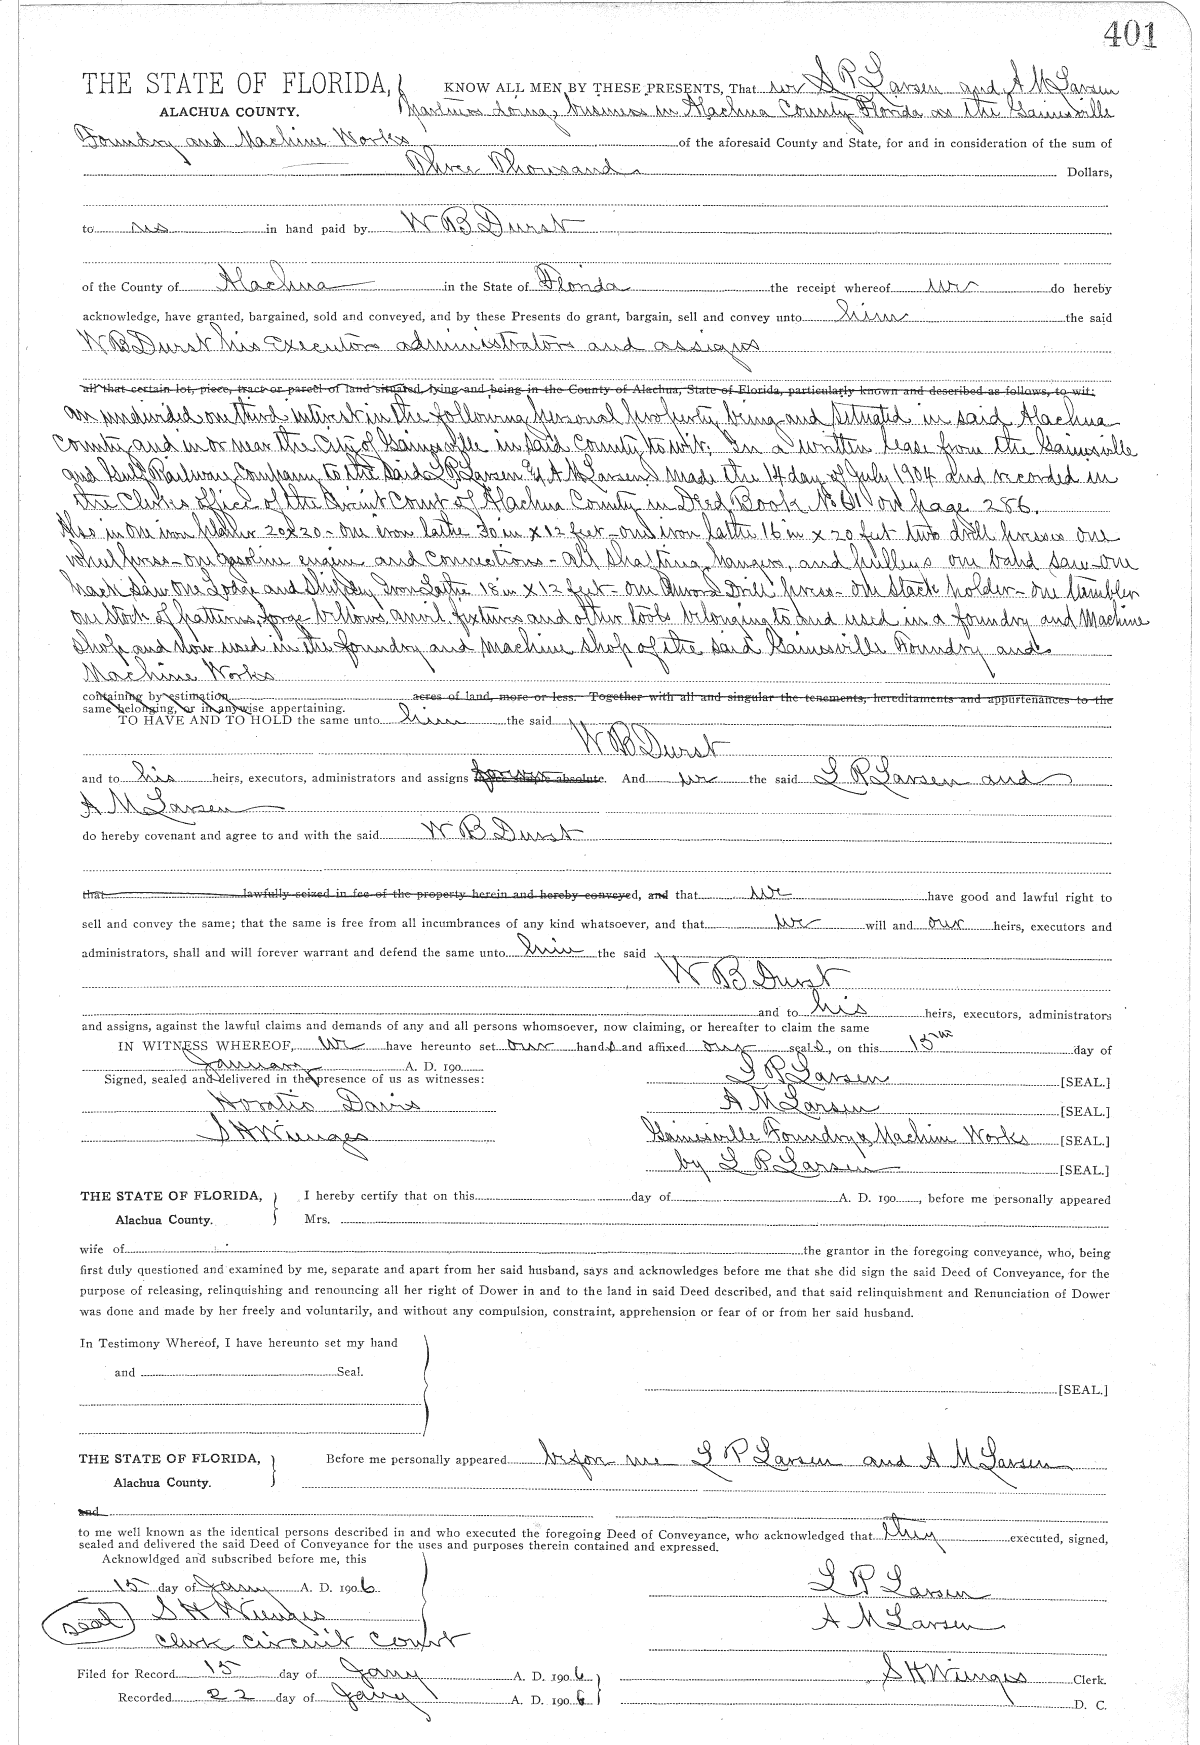 401
THE STATE OF FLORIDA, KNOW ALL MEN BY THESE PRESENTS, That we L P Larsen and A M Larsen
ALACHUA COUNTY. Partners doing business in Alachua County Florida as the Gainesville
Foundry and Machine Works of the aforesaid County and State, for and in consideration of the sum of
Three Thousand Dollars,
to us in hand paid by W B Durst
of the County of Alachua in the State of Florida the receipt whereof we do hereby
acknowledge, have granted, bargained, sold and conveyed, and by these Presents do grant, bargain, sell and convey unto him the said
W B Durst his Executors administrators and assigns
all that certain lot, piece, tract or parcel of land situated, lying and being in the County of Alachua, State of Florida, particularly known and described as follows, to wit:
an undivided on third interest in the following personal property, being and situated in said Alachua
County and in or near the City of Gainesville in said County to wit: In a written lease from the Gainesville
and Gulf Railway Company to the said L P Larsen & A M Larsen made the 14 day of July 1904 and recorded in
the Clerks office of the Circuit Court of Alachua County in Deed Book No 61 on page 286.
Also in one iron planer 20x20 - one iron lathe 30 in x 12 feet - one iron lathe 16 in x 20 feet two drill presses one
wheel press - one gasoline engine and connections - all shafting, hangers, and pulleys one band saw - one
hack saw one Lodge and Shipley Iron Lathe 18 in x 12 feet - one Drill press - one stock holder - one tumbler
one stock of patterns, forge bellows anvil fixtures and other tools belonging to and used in a foundry and Machine
shop and now used in the foundry and machine shop of the said Gainesville Foundry and
Machine Works
containing by estimation acres of land, more or less. Together with all and singular the tenements, hereditaments and appurtenances to the
same belonging, or in anywise appertaining.
TO HAVE AND TO HOLD the same unto him the said
W B Durst
and to his heirs, executors, administrators and assigns forever. And we the said L P Larsen and
A M Larsen
do hereby covenant and agree to and with the said W B Durst
that lawfully seized in fee of the property herein and hereby conveyed, and that we have good and lawful right to
sell and convey the same; that the same is free from all incumbrances of any kind whatsoever, and that we will and our heirs, executors and
administrators, shall and will forever warrant and defend the same unto him the said
W B Durst
and to his heirs, executors, administrators
and assigns, against the lawful claims and demands of any and all persons whomsoever, now claiming, or hereafter to claim the same
IN WITNESS WHEREOF, we have hereunto set our hands and affixed our seals, on this 15th day of
January A. D. 190
Signed, sealed and delivered in the presence of us as witnesses: L P Larsen [SEAL.]
Horatio Davis A M Larsen [SEAL.]
S H Wienges Gainesville Foundry & Machine Works [SEAL.]
by L P Larsen [SEAL.]
THE STATE OF FLORIDA, I hereby certify that on this day of A. D. 190 , before me personally appeared
Alachua County. Mrs.
wife of the grantor in the foregoing conveyance, who, being
first duly questioned and examined by me, separate and apart from her said husband, says and acknowledges before me that she did sign the said Deed of Conveyance, for the
purpose of releasing, relinquishing and renouncing all her right of Dower in and to the land in said Deed described, and that said relinquishment and Renunciation of Dower
was done and made by her freely and voluntarily, and without any compulsion, constraint, apprehension or fear of or from her said husband.
In Testimony Whereof, I have hereunto set my hand
and Seal.
[SEAL.]
THE STATE OF FLORIDA, Before me personally appeared before me L P Larsen and A M Larsen
Alachua County.
and
to me well known as the identical persons described in and who executed the foregoing Deed of Conveyance, who acknowledged that they executed, signed,
sealed and delivered the said Deed of Conveyance for the uses and purposes therein contained and expressed.
Acknowldged and subscribed before me, this
15 day of Jany A. D. 1906 L P Larsen
seal S H Wienges A M Larsen
Clerk Circuit Court
Filed for Record 15 day of Jany A. D. 1906 S H Wienges Clerk.
Recorded 22 day of Jany A. D. 1906 D. C.